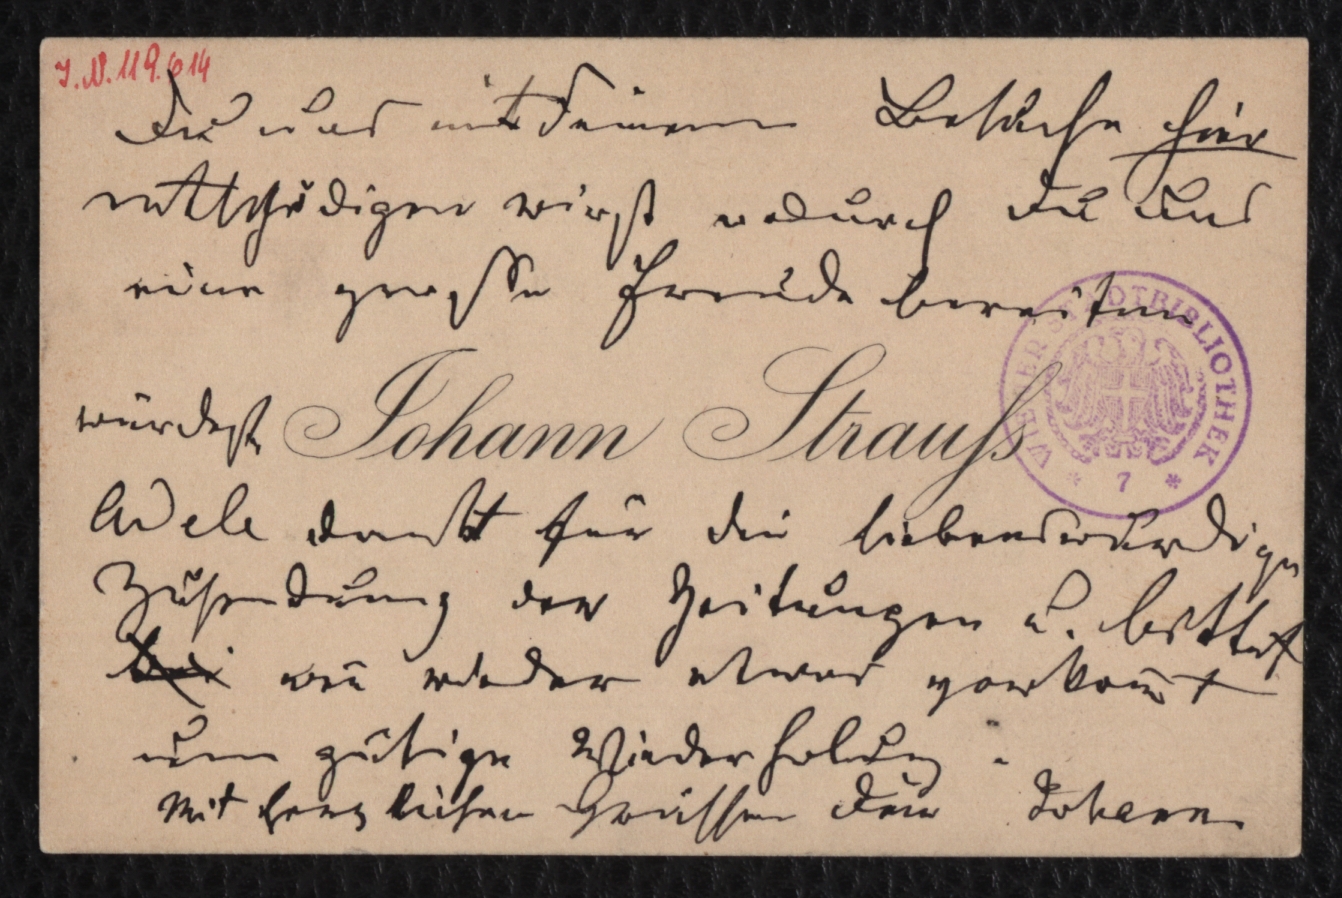 I.N. 119.614
Du uns mit Deinem Besuche hier
entschädigen wirst wodurch Du uns
eine grosse Freude bereiten
würdest
Johann Strauss
WIENER STADTBIBLIOTHEK
* 7 *
Adele dankt für die liebenswürdige
Zusendung der Zeitungen u. bittet
bei wen̄ wieder etwas vorkom̄t
um gütige Wiederholung.
Mit herzlichen Grüssen Dein Johann